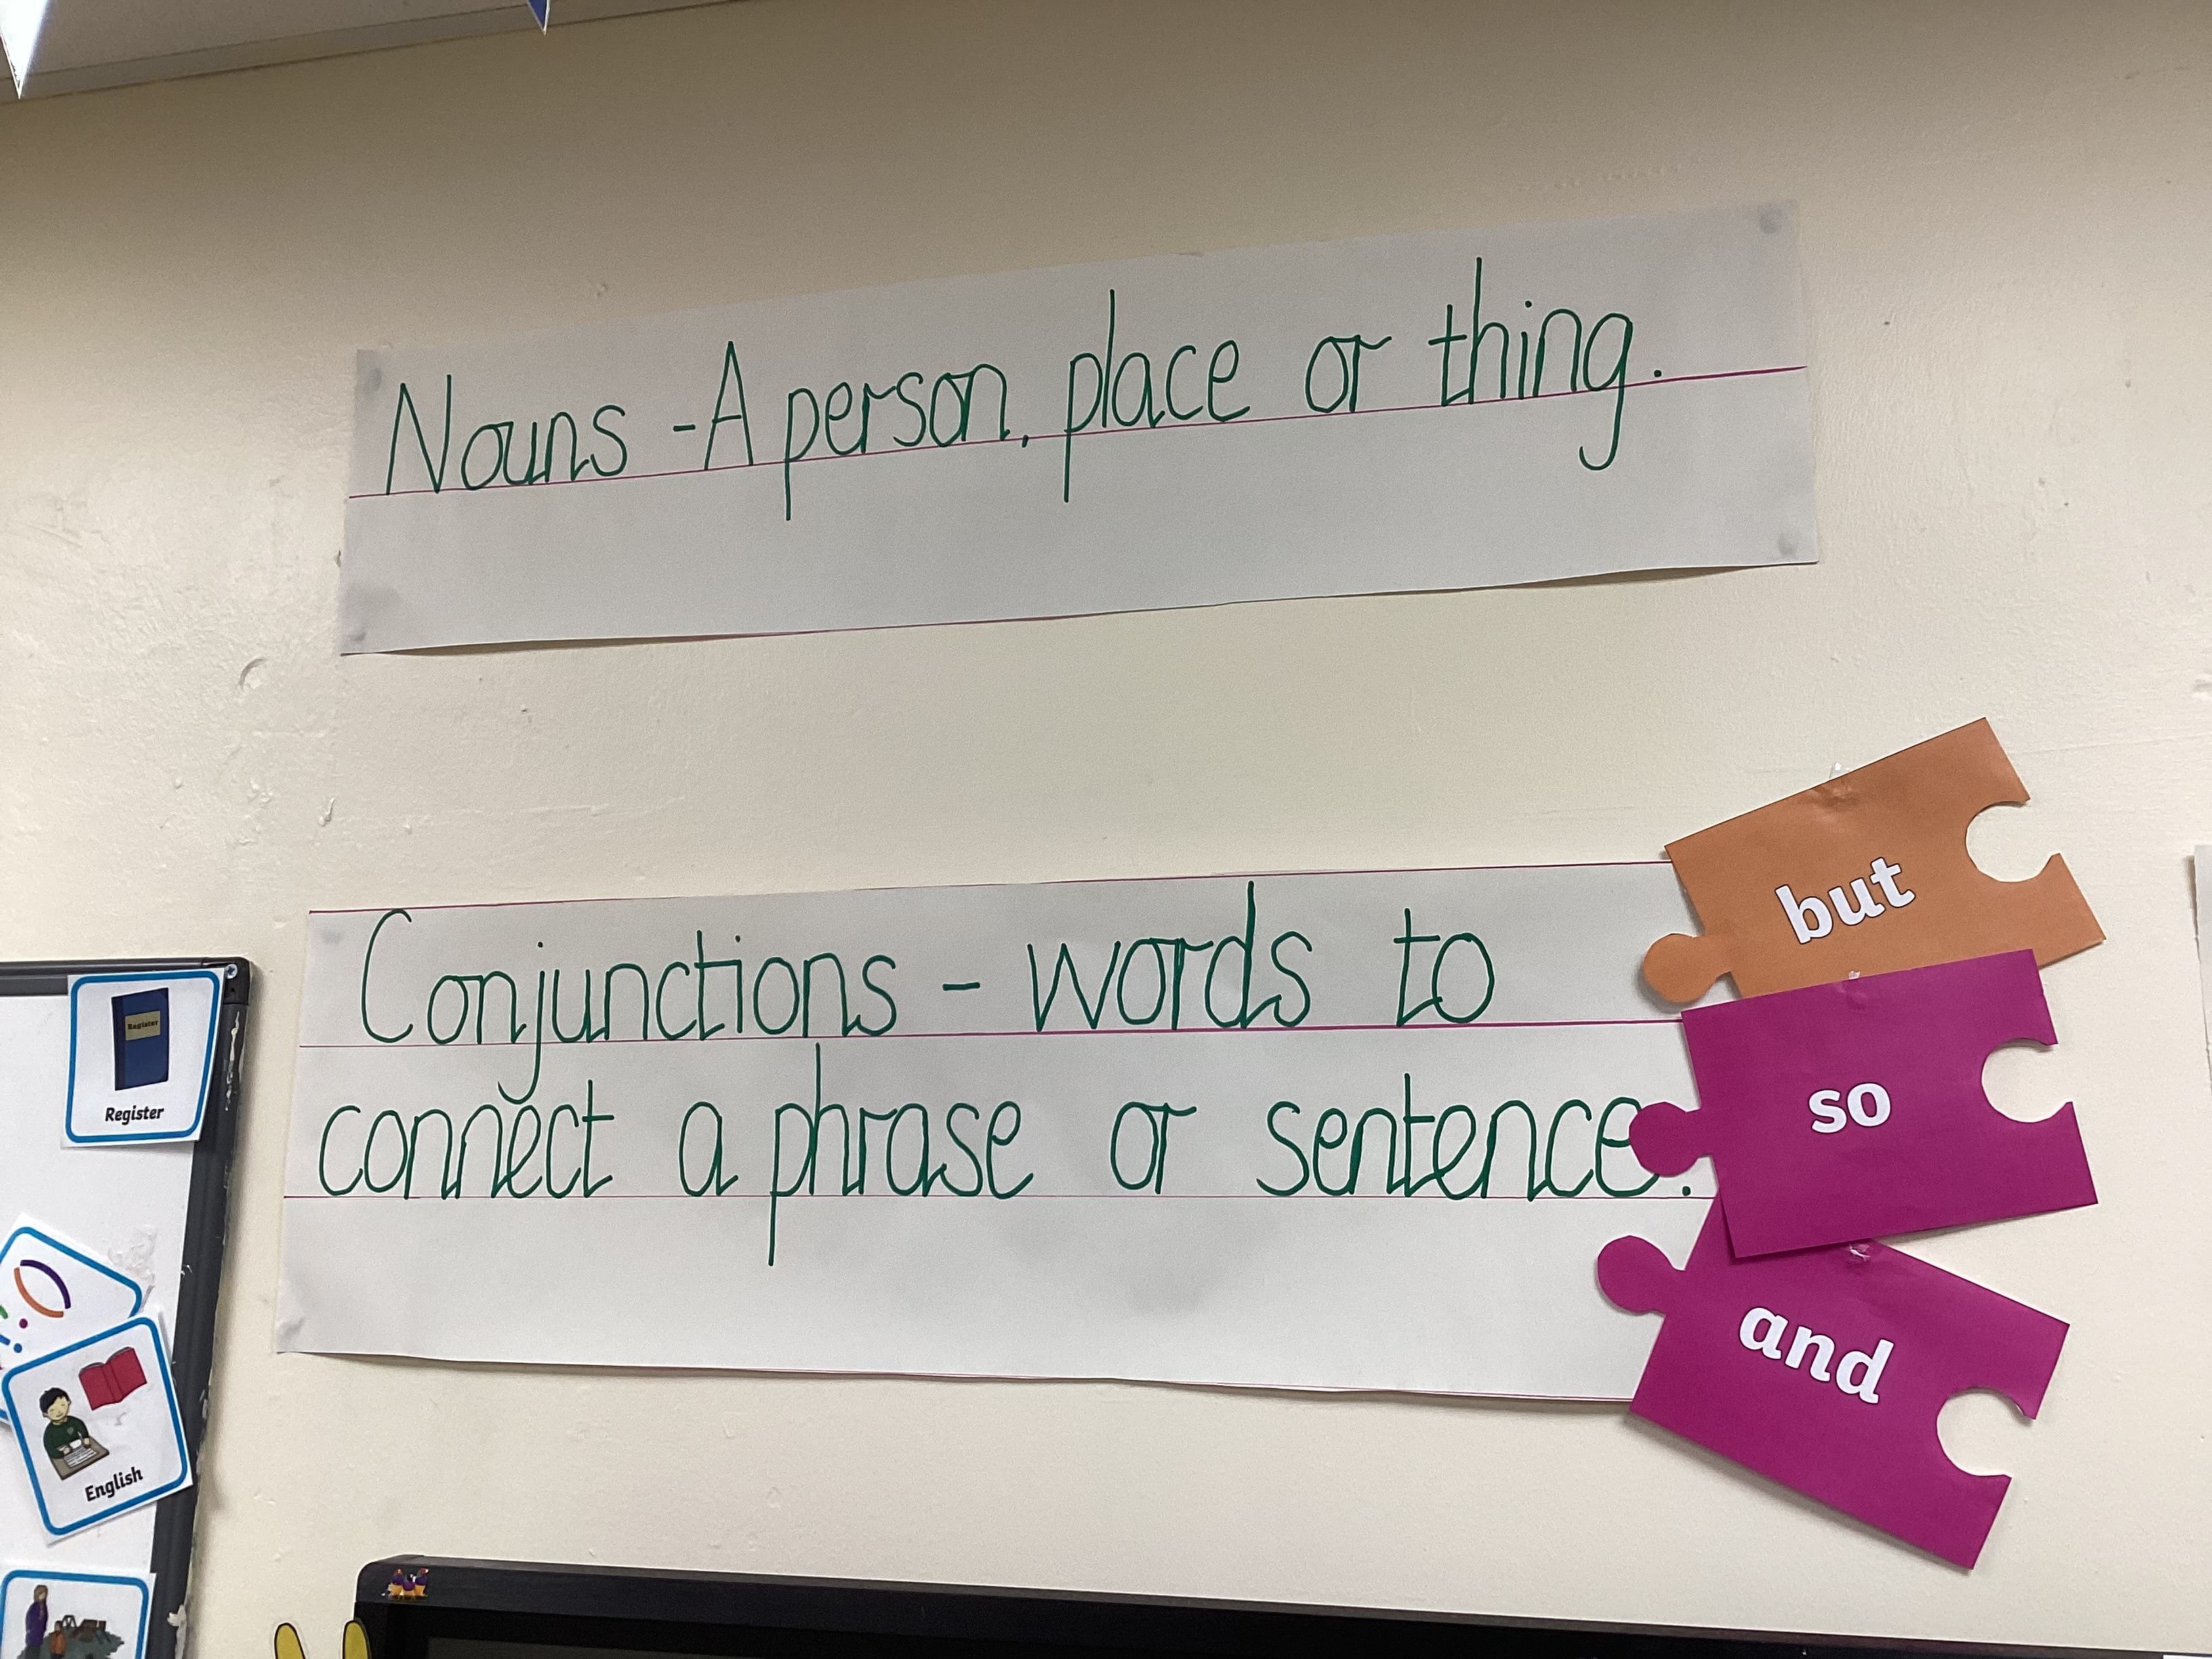 Nouns - A person, place or thing.
Conjunctions - words to
connect a phrase or sentence.
but
so
and
Register
Register
English